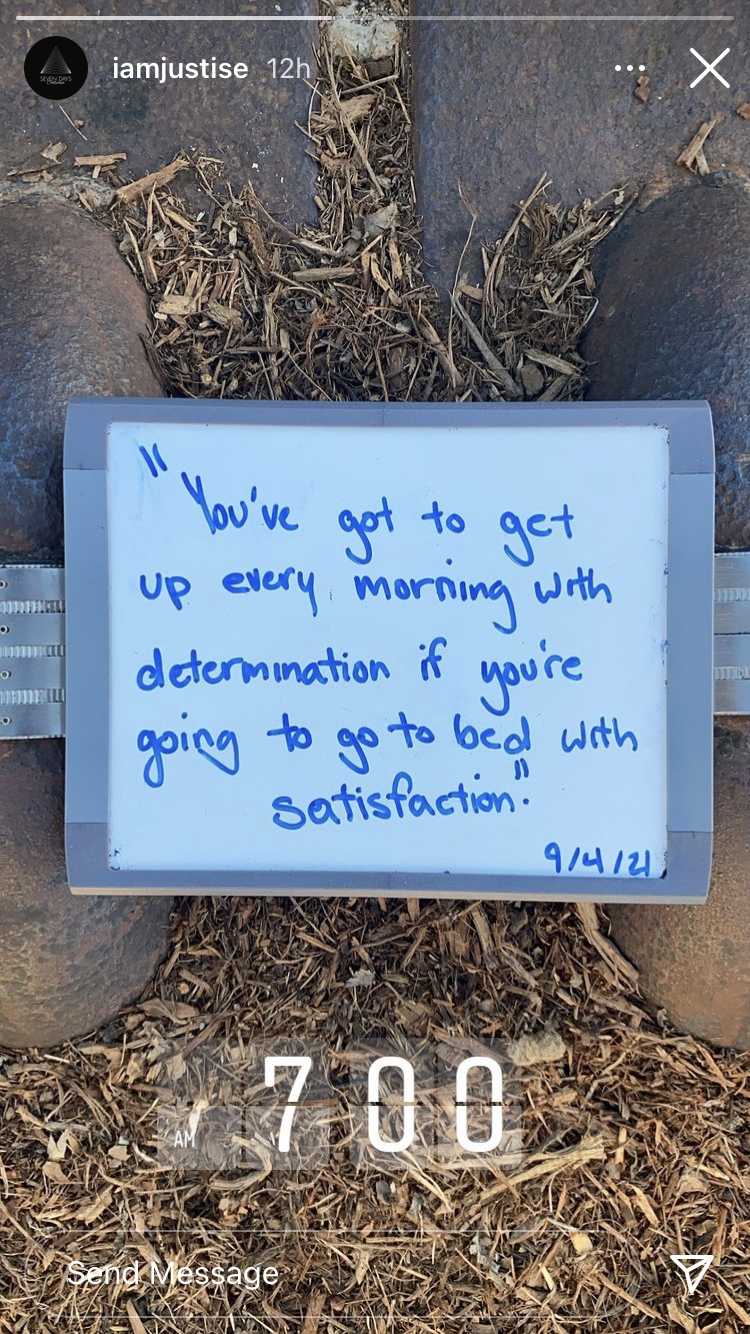 iamjustise 12h
SEVEN DAYS
"You've got to get
up every morning with
determination if you're
going to go to bed with
satisfaction."
9/4/21
AM 7 00
Send Message